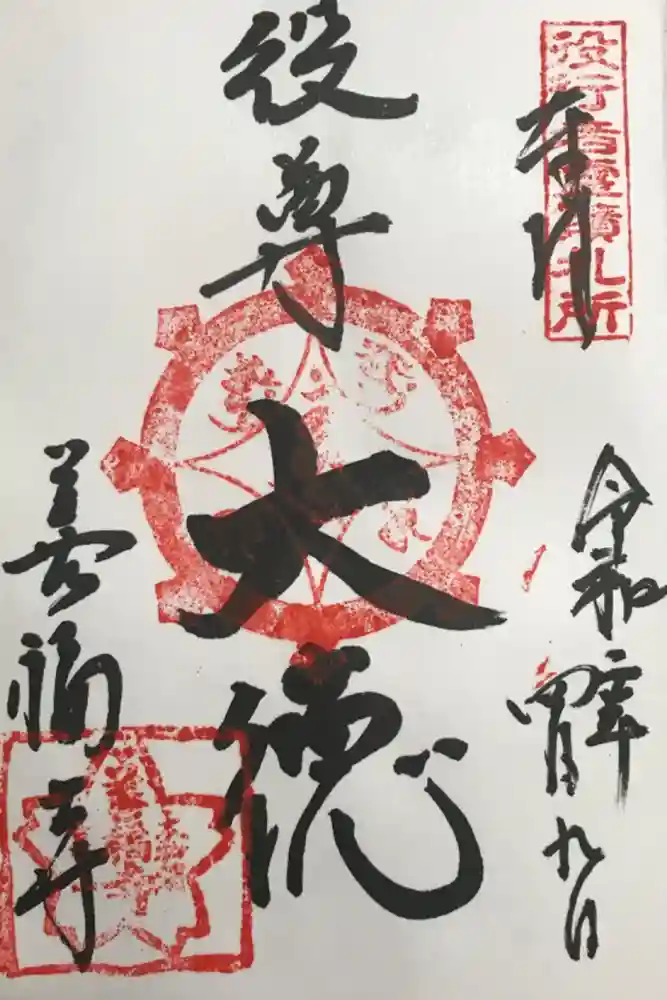 役行者霊蹟札所
奉拝
役尊
大徳
令和二年
四月九日
善福寺